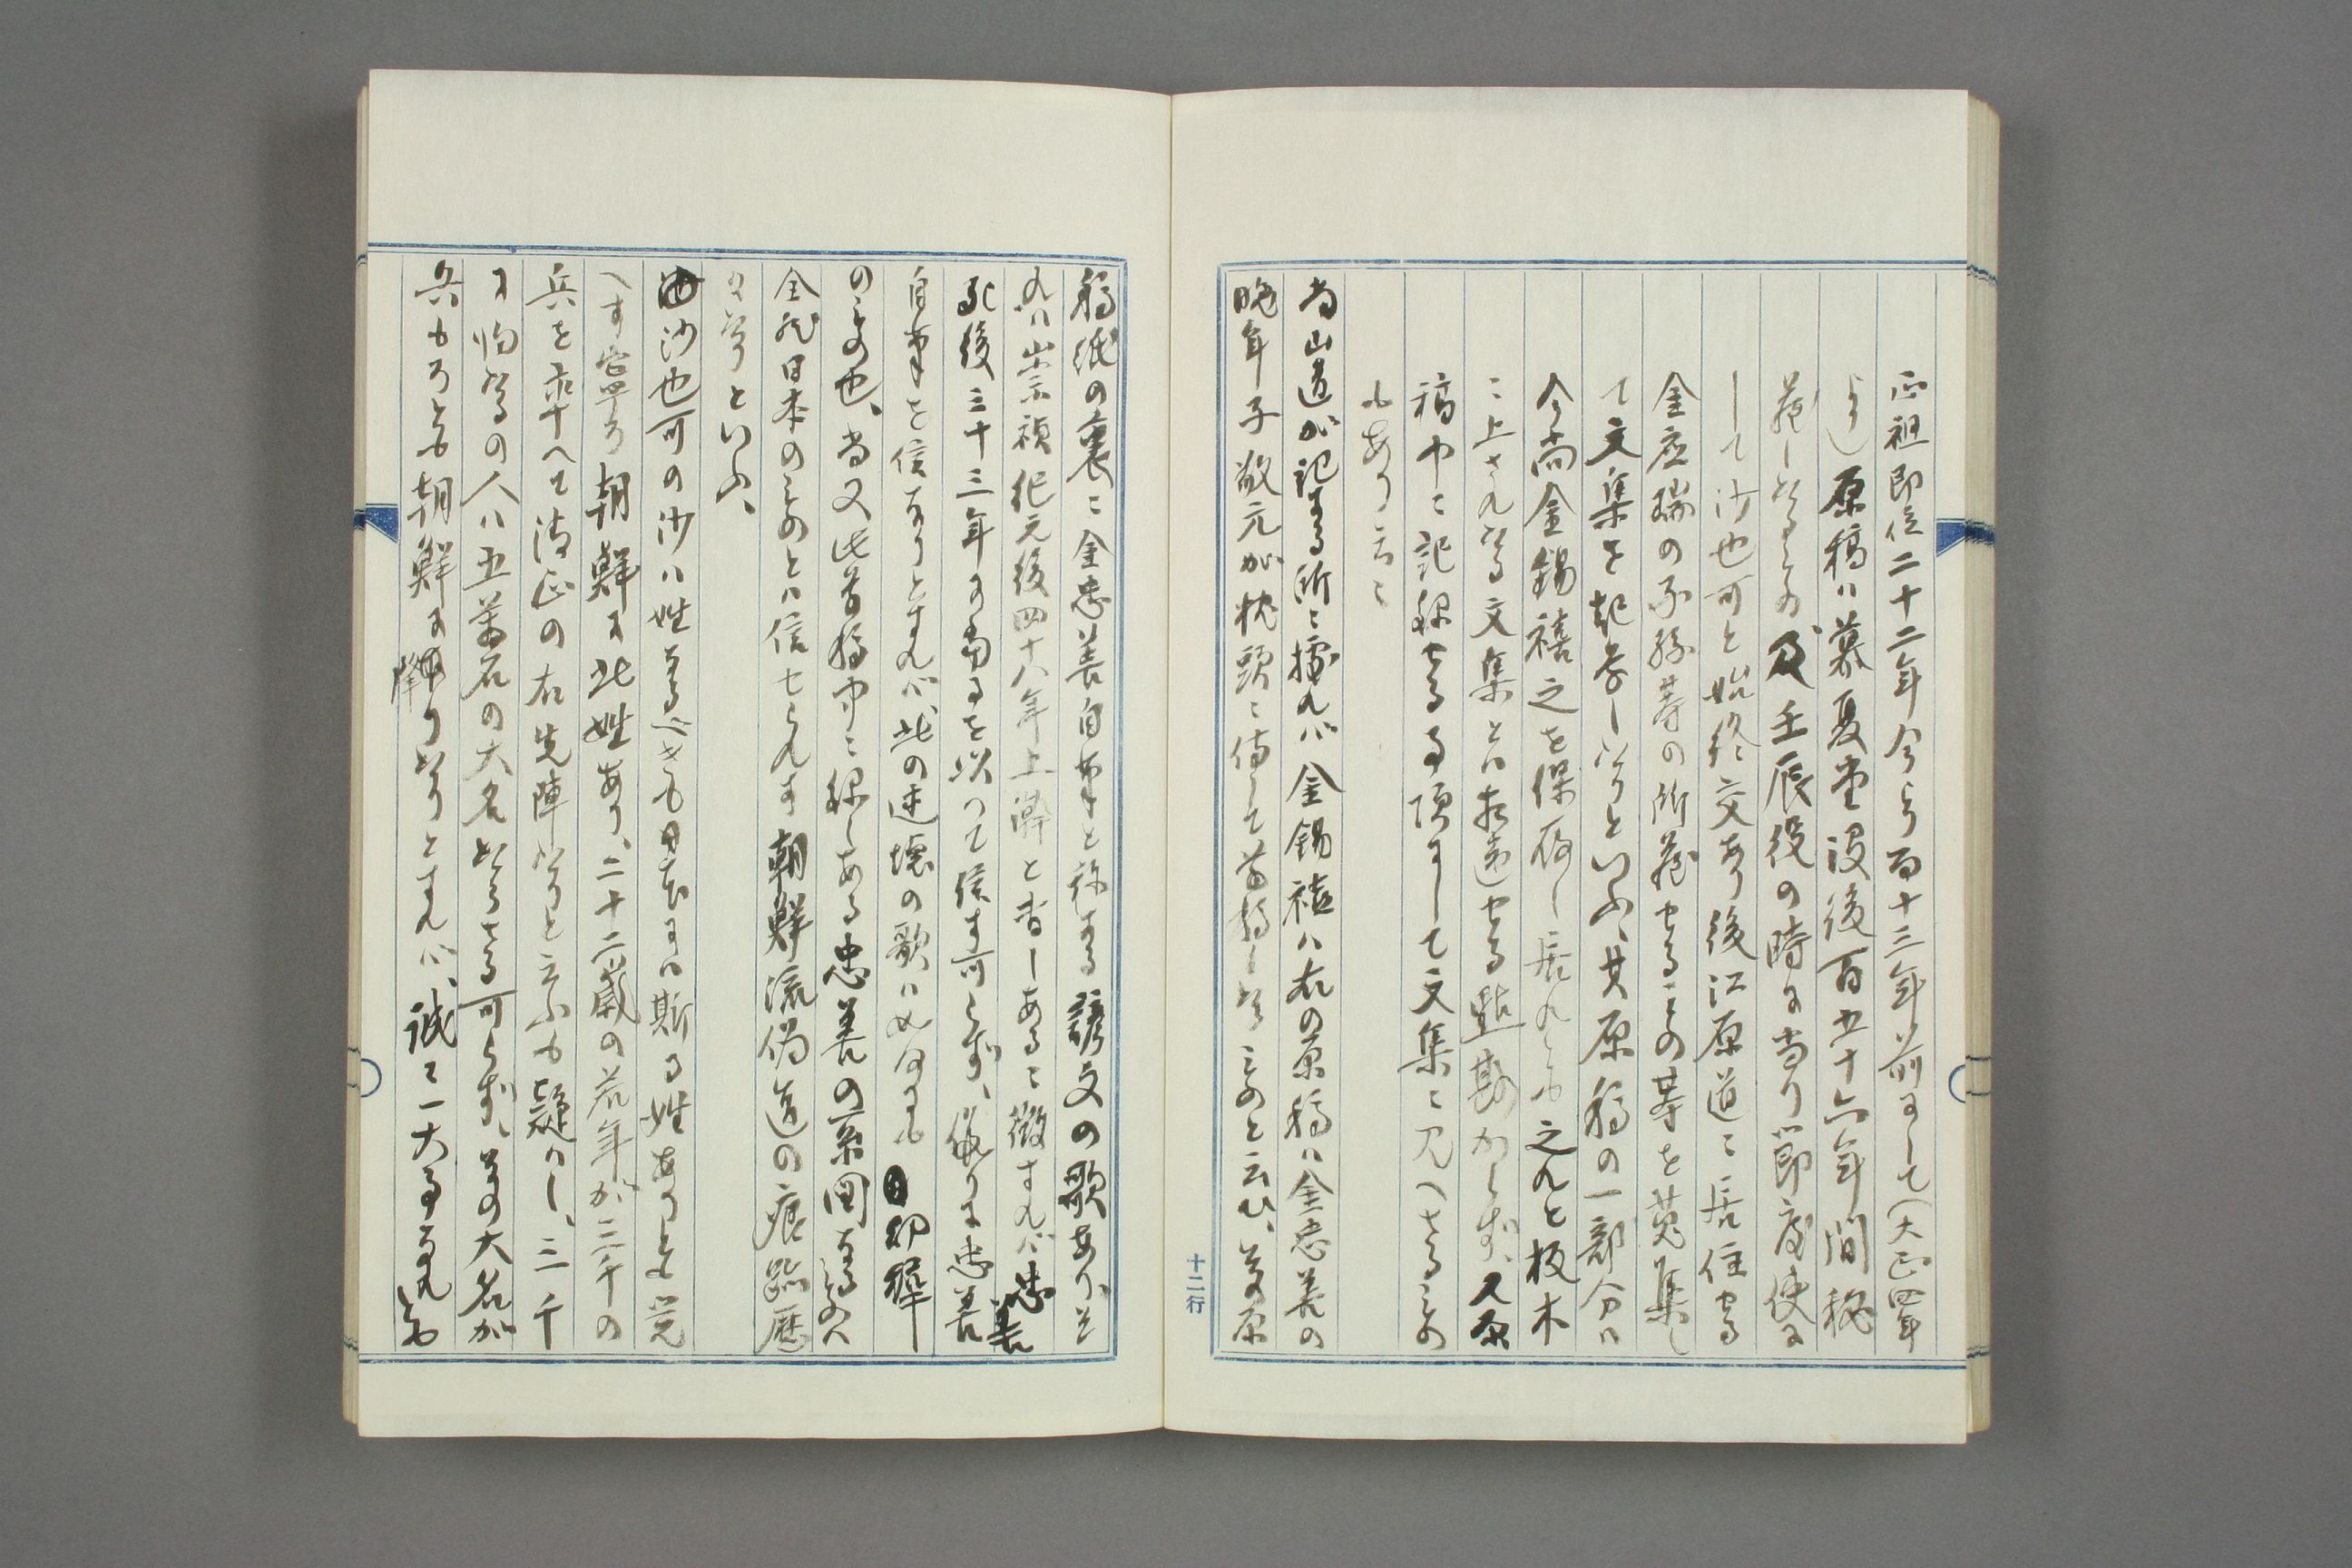 正祖即位二十二年今より百十三年前にして(大正四年
より)原稿ハ慕夏堂没後百五十六年間秘
蔵したるもの及壬辰役の時に当り節度使に
して沙也可と始終交あり後江原道ニ居住せる
金応瑞の子孫等の所蔵せるもの等を蒐集し
て文集を起草したりといふ、其原稿の一部分ハ
今尚金錫禧之を保存し居れとも之れと板木
ニ上されたる文集とハ相違せる點尠からず、又原
稿中ニ記録せる事項にして文集ニ見へざるもの
もあり云々
尚山道が記する所ニ拠れバ金錫禧ハ右の原稿ハ金忠善の
晩年子敬元が枕頭ニ侍して草稿したるものと云ひ、草原
稿紙の裏ニ金忠善自筆と称する諺文の歌あり、
れハ崇禎紀元後四十八年上澣と書しあるニ徴すれバ忠善
死後三十三年に当るを以つて信す可らず、仮りに忠善
自筆を信なりとすれバ此の述懐の歌ハ如何にも
のもの也、尚又此草稿中ニ録しある忠善の系図なるものハ
全然日本のものとハ信せられず朝鮮流偽造の痕跡歴
々たりといふ、
沙也可の沙ハ姓なるべきも日本にハ斯る姓ありとも覚
へす寧ろ朝鮮に此姓あり、二十二歳の若年が三千の
兵を率へて清正の右先陣たりと云ふも疑ハし、三千
に将たるの人ハ五萬石の大名たらざる可らず、其の大名が
兵もろとも朝鮮に降りたりとすれバ、誠に一大事なれども
十二行